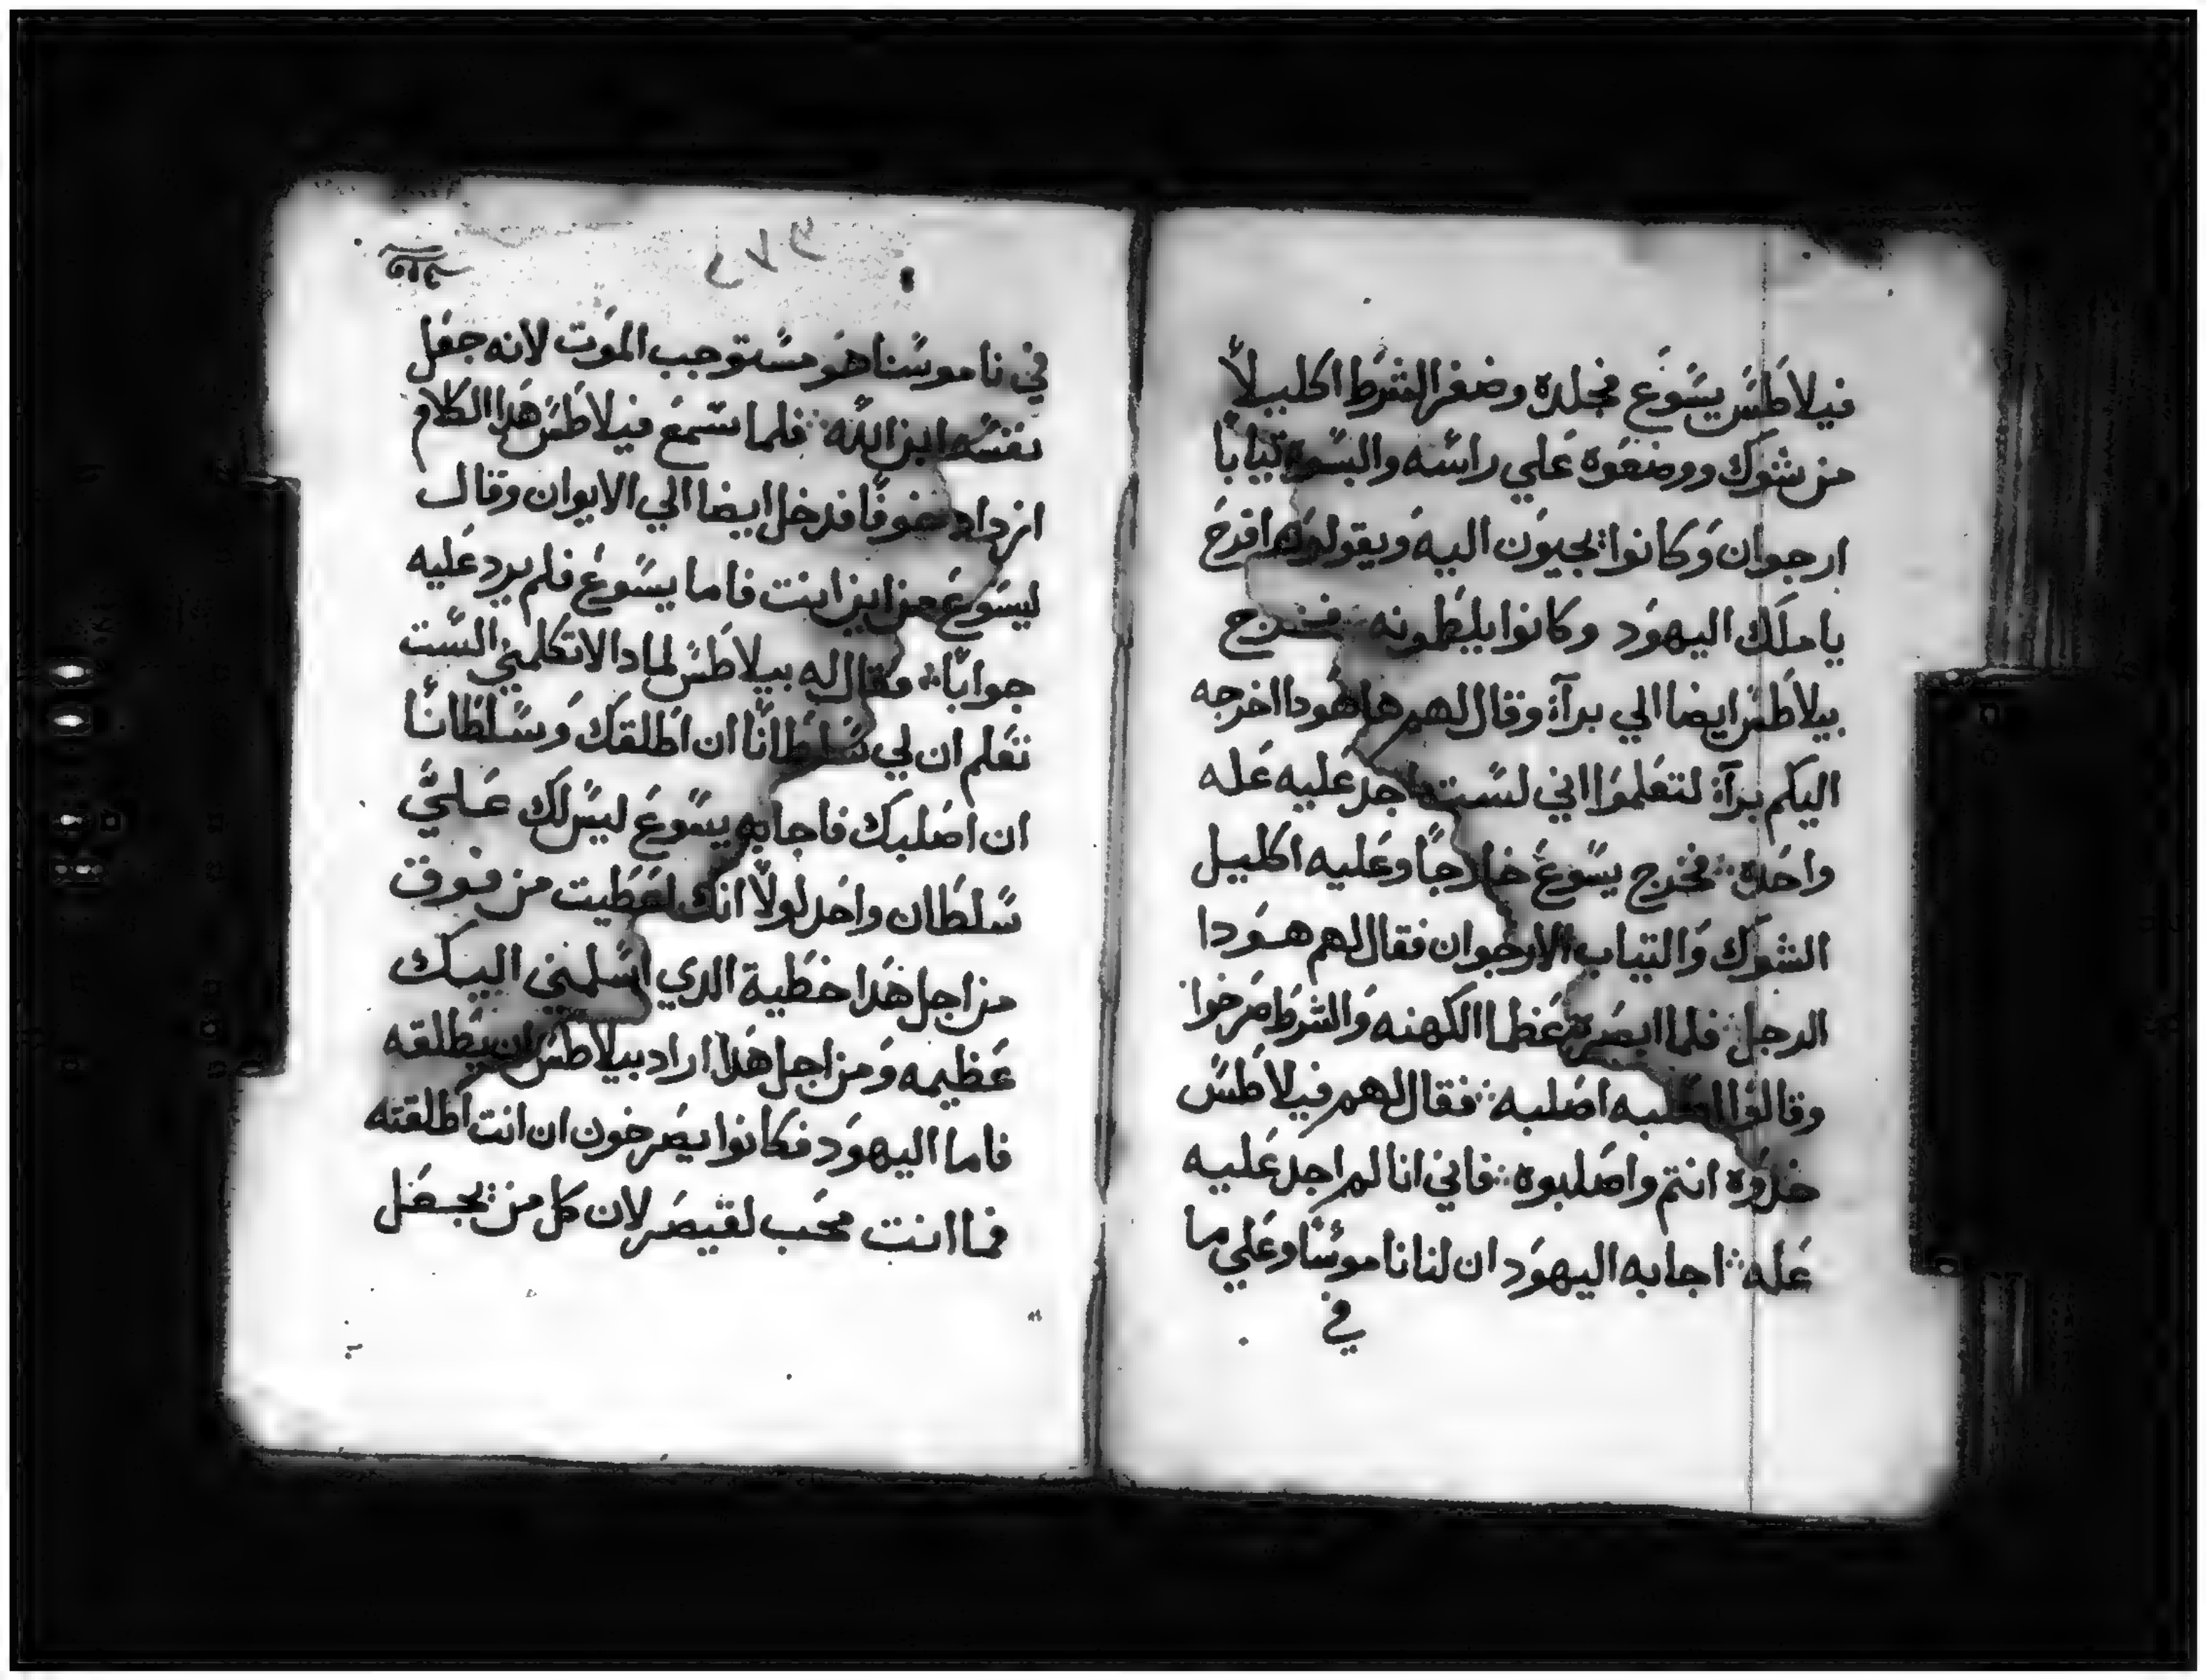 فيلاطس يسوع فجلده وضفر الشرط اكليلاً
من شوك ووضعوه علي راسه والبسوه تيابا
ارجوان وكانوا يجيون اليه ويقولون افرح
يا ملك اليهود وكانوا يلطمونه فخرج
بيلاطس ايضا الي برآة وقال لهم ها هودا اخرجه
اليكم برآة لتعلموا اني لست اجد عليه عله
واحدة فخرج يسوع خارجاً وعليه اكليل
الشوك والتياب الارجوان فقال لهم هودا
الرجل فلما ابصره عظما الكهنه والشرط صرخوا
وقالوا اصلبه اصلبه فقال لهم فيلاطس
خدوه انتم واصلبوه فاني انا لم اجد عليه
عله اجابه اليهود ان لنا ناموسا وعلي ما
في
في ناموسنا هو مستوجب الموت لانه جعل
نفسه ابن الله فلما سمع فيلاطس هدا الكلام
ازداد خوفًا فدخل ايضا الي الايوان وقال
ليسوع من اين انت فاما يسوع فلم يرد عليه
جوابًا فقال له بيلاطس لمادا لا تكلمني الست
تعلم ان لي سلطانًا ان اطلقك وسلطانًا
ان اصلبك فاجابه يسوع ليس لك عليَّ
سلطان واحد لولا انك اعطيت من فوق
من اجل هدا خطية الدي اسلمني اليك
عظيمه ومن اجل هدا اراد بيلاطس ان يطلقه
فاما اليهود فكانوا يصرخون ان انت اطلقته
فما انت محب لقيصر لان كل من يجعل